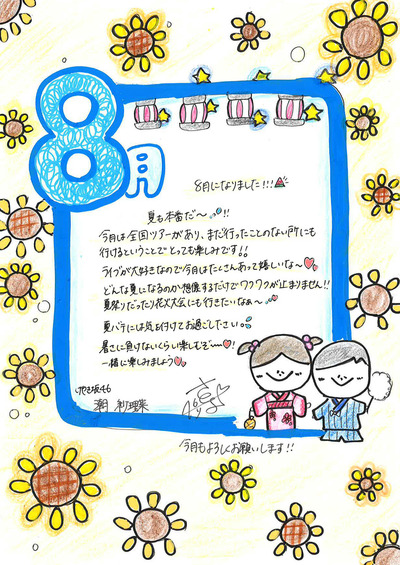 8月
8月になりました!!!
夏も本番だ〜!!
今月は全国ツアーがあり、まだ行ったことのない所にも
行けるということでとっても楽しみです!!
ライブが大好きなので今月はたくさんあって嬉しいな〜
どんな夏になるのか想像するだけでワクワクが止まりません!!
夏祭りだったり花火大会にも行きたいなぁ〜
夏バテには気を付けてお過ごしさい
暑さに負けないくらい楽しむぞ〜!
一緒に楽しみましょう
けやき坂46
潮 紗理菜
今月もよろしくお願いします!!